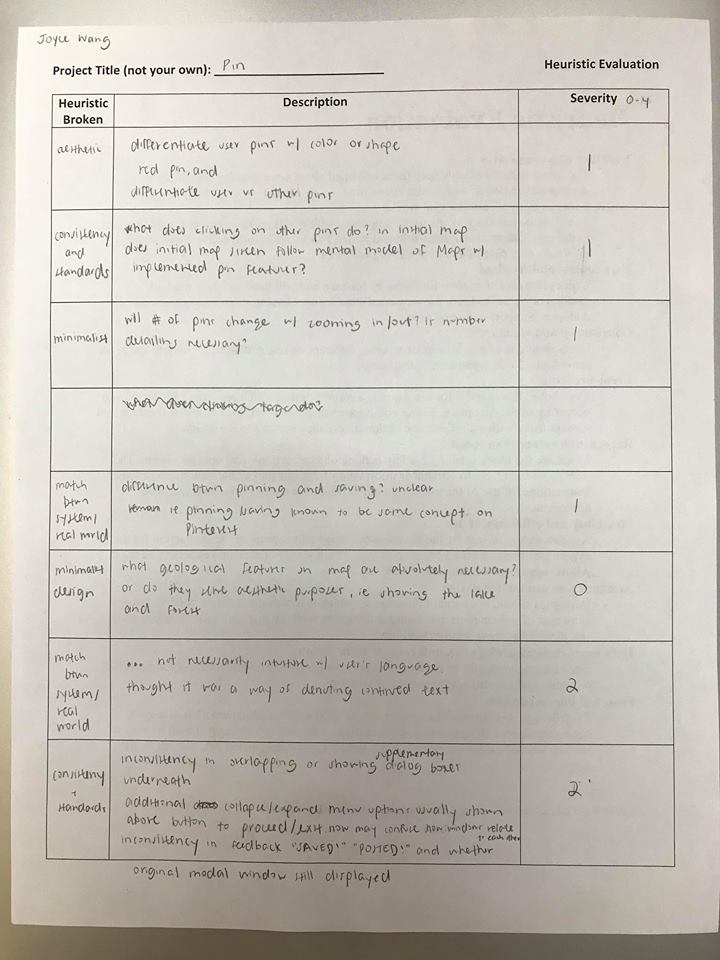 Joyce Wang
Project Title (not your own): Pin
Heuristic Evaluation
Heuristic Broken
Description
Severity 0-4
aesthetic
differentiate user pins w/ color or shape
red pin, and
differentiate user vs other pins
1
consistency
and
standards
what does clicking on other pins do? in initial map
does initial map screen follow mental model of Maps w/
implemented pin features?
1
minimalist
will # of pins change w/ zooming in/out? Is number
detailing necessary?
1
match
btwn
system/
real world
difference btwn pinning and saving? unclear
ie pinning saving known to be same concept on
Pinterest
1
minimalist
design
what geological features on map are absolutely necessary?
or do they serve aesthetic purposes, ie showing the lake
and forest
0
match
btwn
system/
real
world
... not necessarily intuitive w/ user's language
thought it was a way of denoting continued text
2
consistency
+
standards
inconsistency in overlapping or showing supplementary dialog boxes
underneath
additional collapse/expand menu options usually shown
above button to proceed/exit. now may confuse how windows relate to each other
inconsistency in feedback "SAVED!" "POSTED!" and whether
original modal window still displayed
2